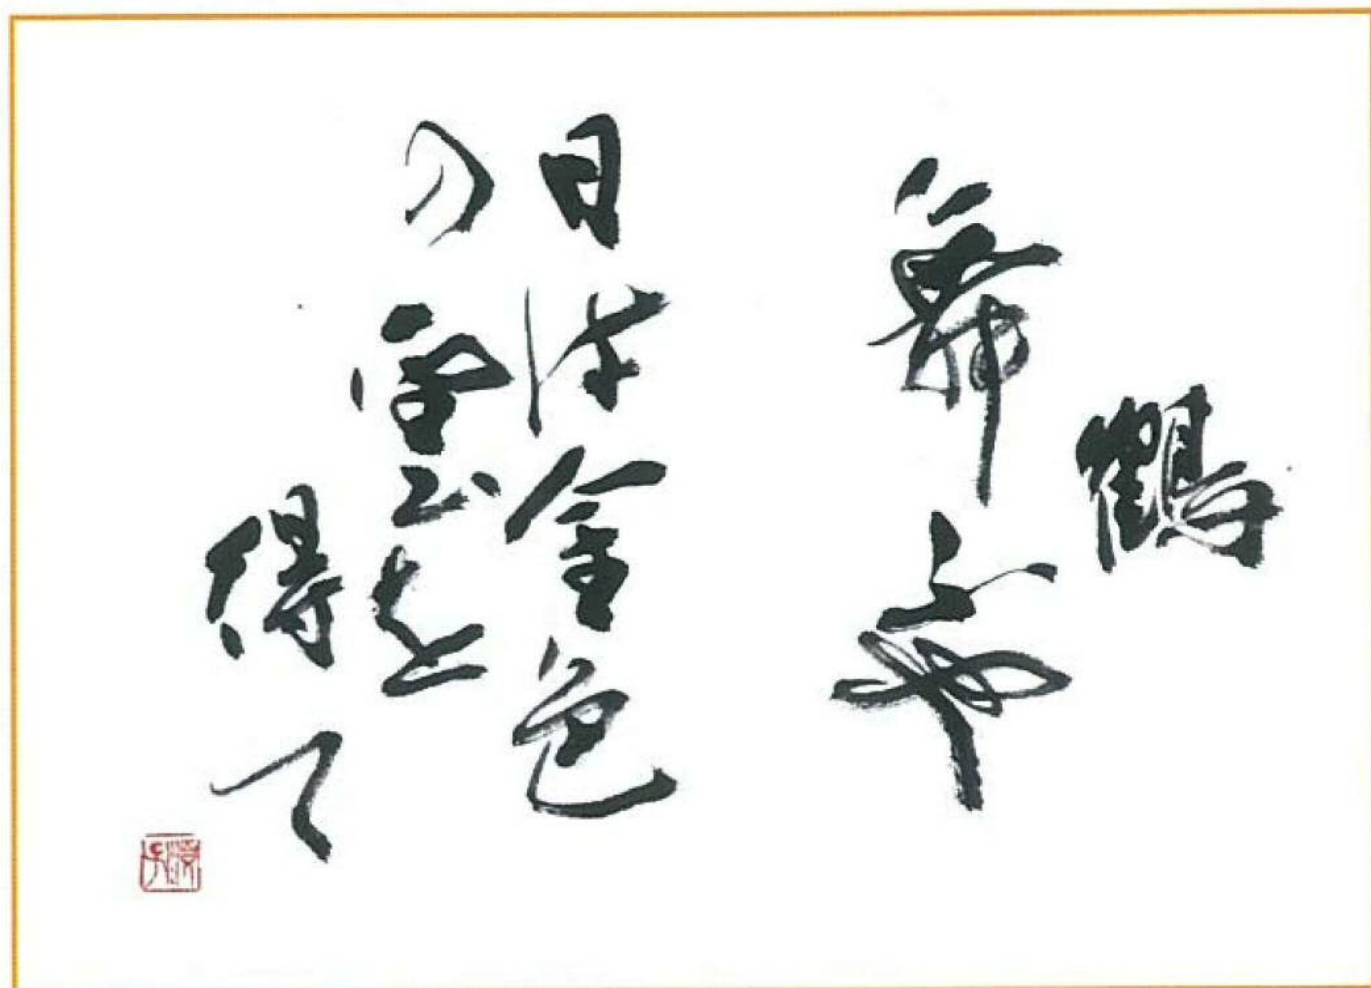 鶴
舞ふや
日は金色
の雲を
得て